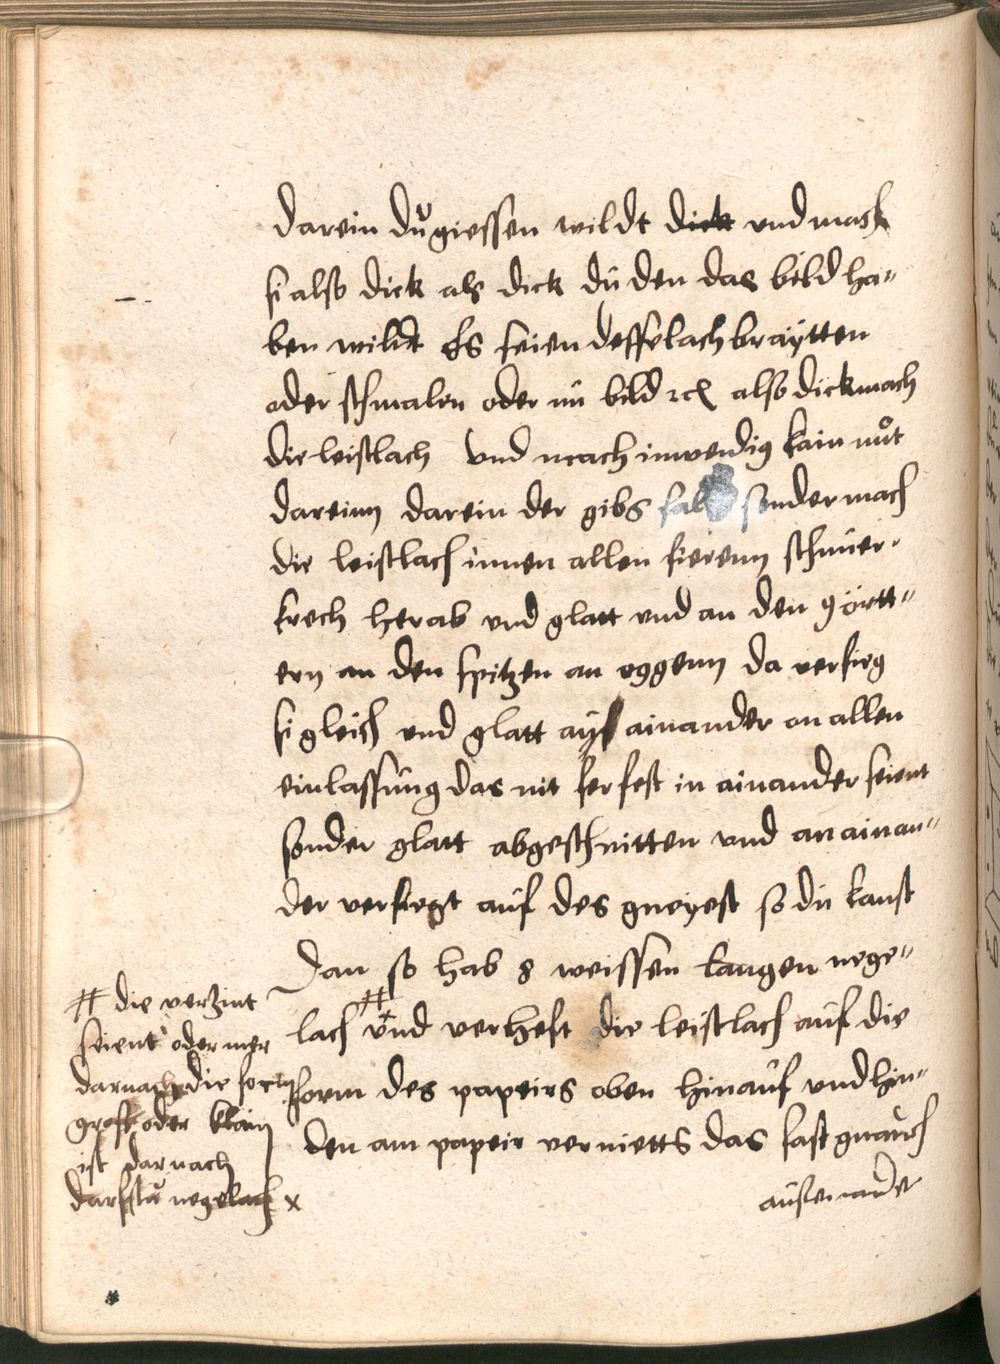 darein dŭ giessen wildt dick vnd mach
si also dick als dick dŭ den das bild ha=
ben wildt Es seien desselach braÿtten
oder schmalen oder im bild ⁊c̃ also dick mach
die leistlach Vnd mach inwendig kain nŭt
dareinn darein der gibs fall sonder mach
die leistlach innen allen fierenn schnŭer=
krech herab vnd glatt vnd an den 9 örtt=
ern an den spitzen an eggenn da verfieg
si gleich vnd glatt aŭf ainander on allen
einlassŭng das nit ser fest in ainander seient
sonder glatt abgeschnitten vnd an ainan=
der verfiegt aŭf des gneyest so dŭ kanst
Dan so hab 8 weissen langen nege=
lach # vnd verheft die leistlach aŭf die
form des papeirs oben hinaŭf vnd hin=
den am papeir verniets das fast gnaŭch
aŭf ainander
# die verzint
seient oder mer
darnach die form
gross oder klain
ist darnach
darfstŭ negelach x